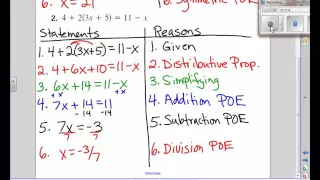 6. x = 21 6. Symmetric POE
2. 4 + 2(3x + 5) = 11 − x
Statements Reasons
1. 4+2(3x+5)=11-x 1. Given
2. 4+6x+10=11-x 2. Distributive Prop.
3. 6x+14=11-x 3. Simplifying
+x +x
4. 7x+14=11 4. Addition POE
-14 -14
5. 7x=-3 5. Subtraction POE
7 7
6. x=-3/7 6. Division POE